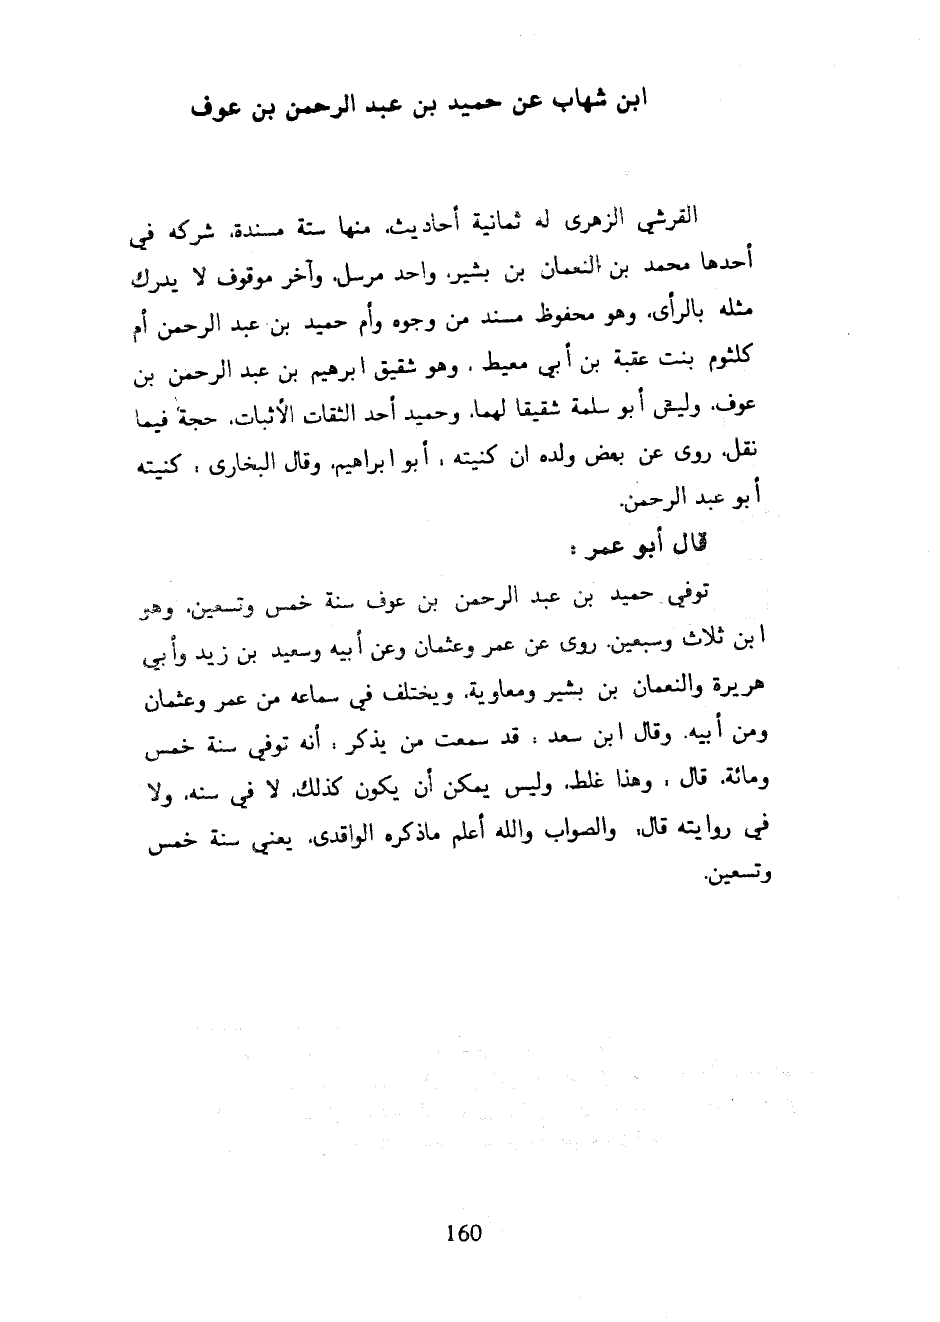 ابن شهاب عن حميد بن عبد الرحمن بن عوف
القرشي الزهرى له ثمانية أحاديث، منها ستة مسندة، شركه في
أحدها محمد بن النعمان بن بشير، واحد مرسل، وآخر موقوف لا يدرك
مثله بالرأى، وهو محفوظ مسند من وجوه وأم حميد بن عبد الرحمن أم
كلثوم بنت عقبة بن أبي معيط ، وهو شقيق ابرهيم بن عبد الرحمن بن
عوف، وليش أبو سلمة شقيقا لهما، وحميد أحد الثقات الأثبات، حجة فيما
نقل، روى عن بعض ولده ان كنيته ، أبو ابراهيم، وقال البخارى ؛ كنيته
أبو عبد الرحمن.
قال أبو عمر :
توفي حميد بن عبد الرحمن بن عوف سنة خمس وتسعين، وهو
ابن ثلاث وسبعين. روى عن عمر وعثمان وعن أبيه وسعيد بن زيد وأبي
هريرة والنعمان بن بشير ومعاوية، ويختلف في سماعه من عمر وعثمان
ومن أبيه. وقال ابن سعد : قد سمعت من يذكر : أنه توفي سنة خمس
ومائة. قال ، وهذا غلط، وليس يمكن أن يكون كذلك، لا في سنه، ولا
في روايته قال، والصواب والله أعلم ماذكره الواقدى، يعني سنة خمس
وتسعين.
160